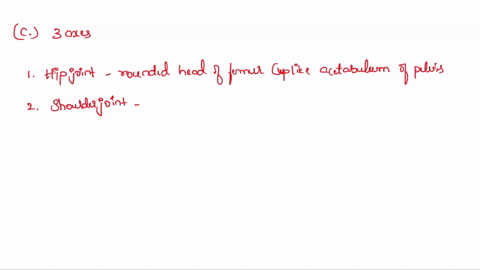 (C.) 3 axes
1. Hip joint - rounded head of femur Cuplike acetabulum of pelvis
2. Shoulder joint -